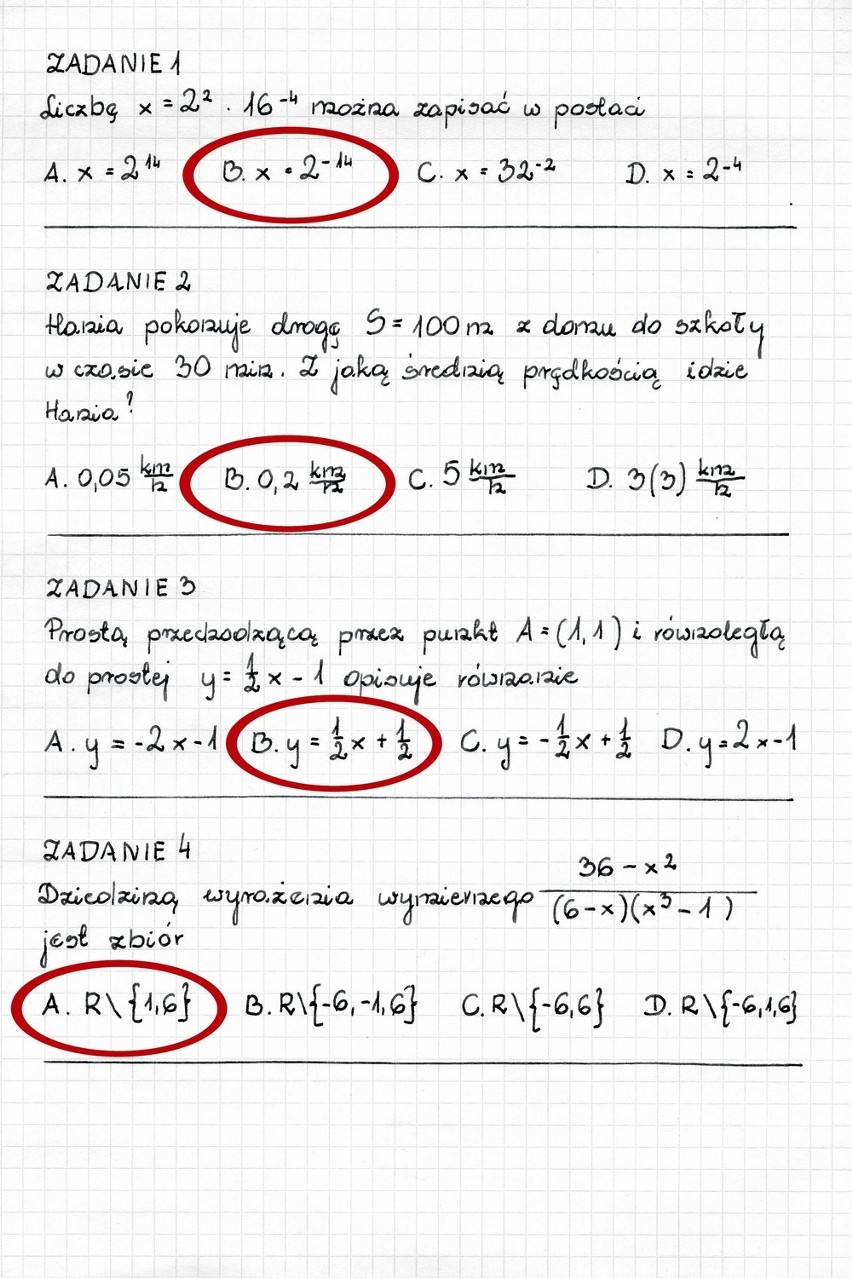 ZADANIE 1
Liczbę x = 2² · 16⁻⁴ można zapisać w postaci
A. x = 2¹⁴ B. x = 2⁻¹⁴ C. x = 32⁻² D. x = 2⁻⁴
ZADANIE 2
Hania pokonuje drogę S = 100 m z domu do szkoły
w czasie 30 min. Z jaką średnią prędkością idzie
Hania?
A. 0,05 km/h B. 0,2 km/h C. 5 km/h D. 3(3) km/h
ZADANIE 3
Prostą przechodzącą przez punkt A = (1,1) i równoległą
do prostej y = 1/2 x - 1 opisuje równanie
A. y = -2x-1 B. y = 1/2 x + 1/2 C. y = -1/2 x + 1/2 D. y = 2x-1
ZADANIE 4
Dziedziną wyrażenia wymiernego (36 - x²)/((6-x)(x³-1))
jest zbiór
A. R\{1,6} B. R\{-6,-1,6} C. R\{-6,6} D. R\{-6,1,6}